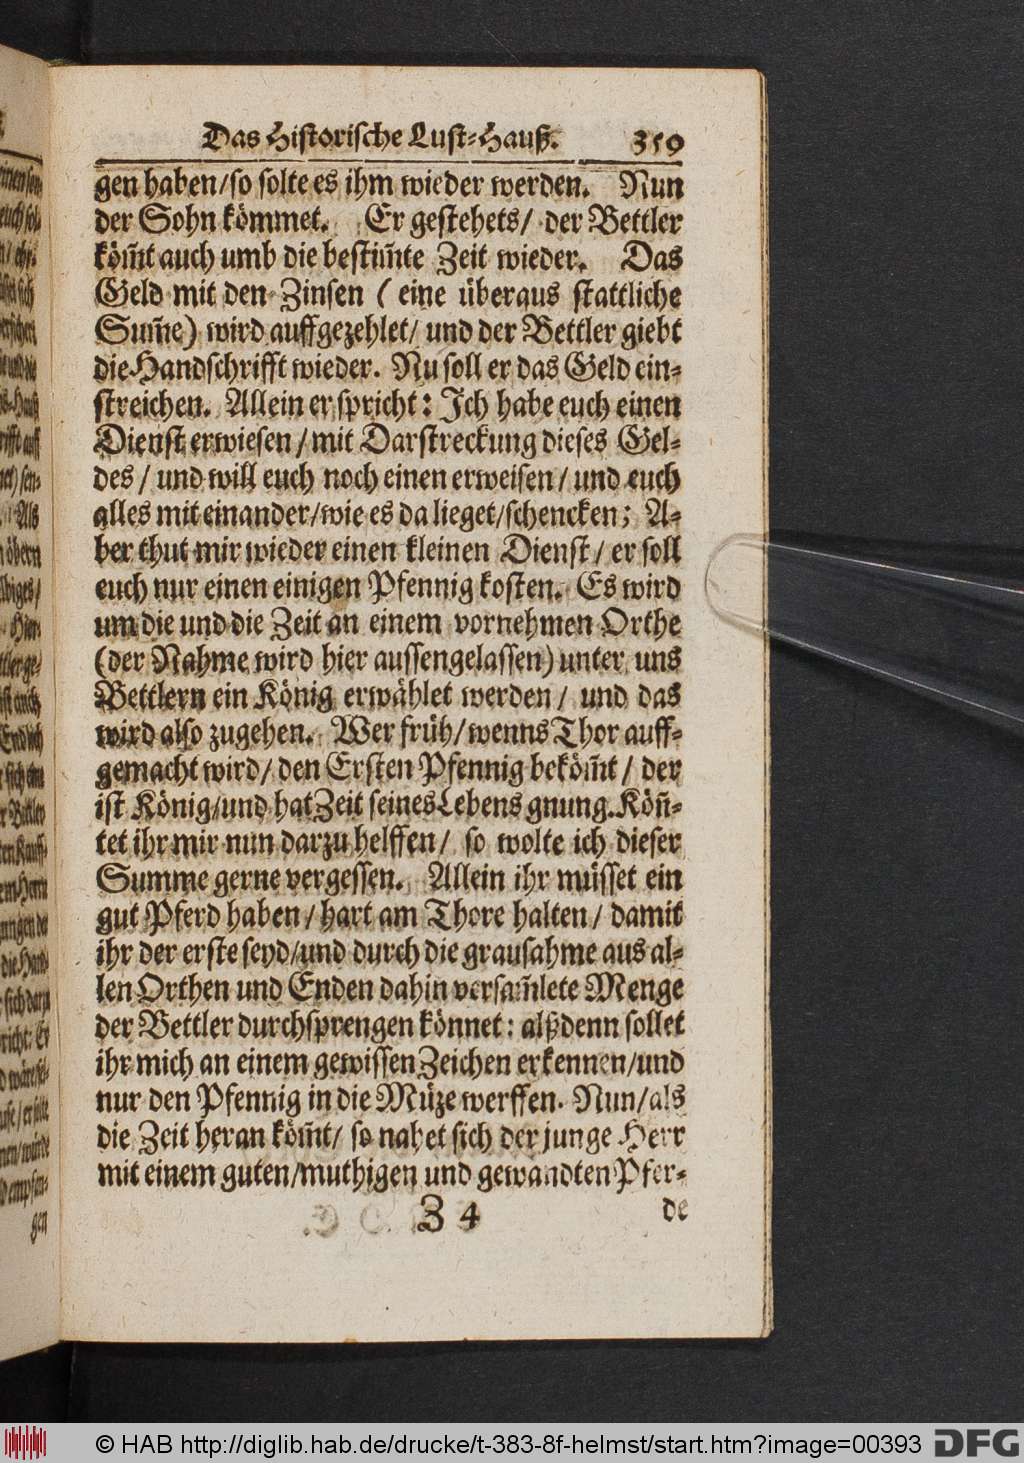 Das Historische Lust-Hauß. 359
gen haben/so solte es ihm wieder werden. Nun
der Sohn kömmet. Er gestehets/ der Bettler
köm̃t auch umb die bestim̃te Zeit wieder. Das
Geld mit den Zinsen ( eine überaus stattliche
Sum̃e) wird auffgezehlet/ und der Bettler giebt
die Handschrifft wieder. Nu soll er das Geld ein-
streichen. Allein er spricht: Ich habe euch einen
Dienst erwiesen/mit Darstreckung dieses Gel-
des/ und will euch noch einen erweisen/ und euch
alles mit einander/wie es da lieget/schencken; A-
ber thut mir wieder einen kleinen Dienst/ er soll
euch nur einen einigen Pfennig kosten. Es wird
um die und die Zeit an einem vornehmen Orthe
(der Nahme wird hier aussengelassen) unter uns
Bettlern ein König erwählet werden/ und das
wird also zugehen. Wer früh/wenns Thor auff-
gemacht wird/ den Ersten Pfennig beköm̃t/ der
ist König/und hat Zeit seines Lebens gnung. Kön̄-
tet ihr mir nun darzu helffen/ so wolte ich dieser
Summe gerne vergessen. Allein ihr müsset ein
gut Pferd haben/hart am Thore halten/ damit
ihr der erste seyd/und durch die grausahme aus al-
len Orthen und Enden dahin versam̃lete Menge
der Bettler durchsprengen könnet: alßdenn sollet
ihr mich an einem gewissen Zeichen erkennen/und
nur den Pfennig in die Müze werffen. Nun/als
die Zeit heran köm̃t/ so nahet sich der junge Herr
mit einem guten/muthigen und gewandten Pfer-
Z 4 de
© HAB http://diglib.hab.de/drucke/t-383-8f-helmst/start.htm?image=00393 DFG